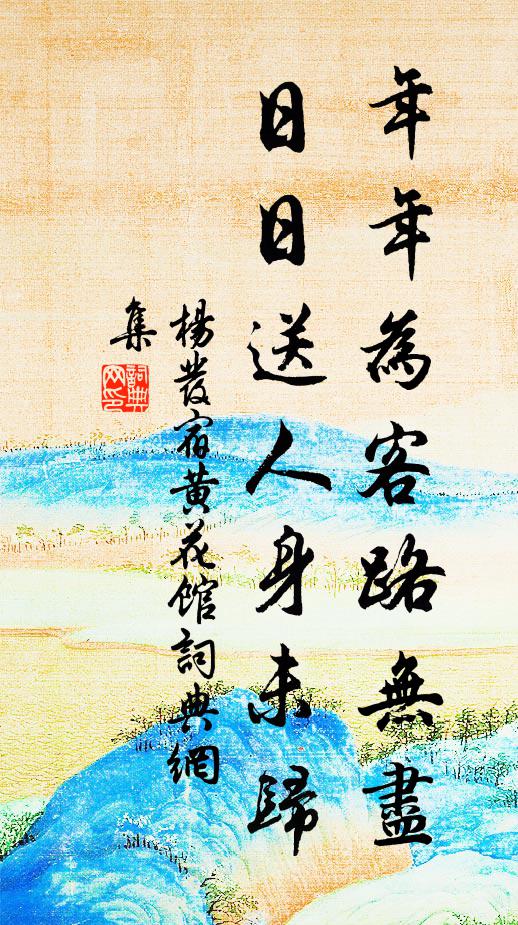 年年為客路無盡
日日送人身未歸
楊發宿黃花館詞典網
集
詞典网印